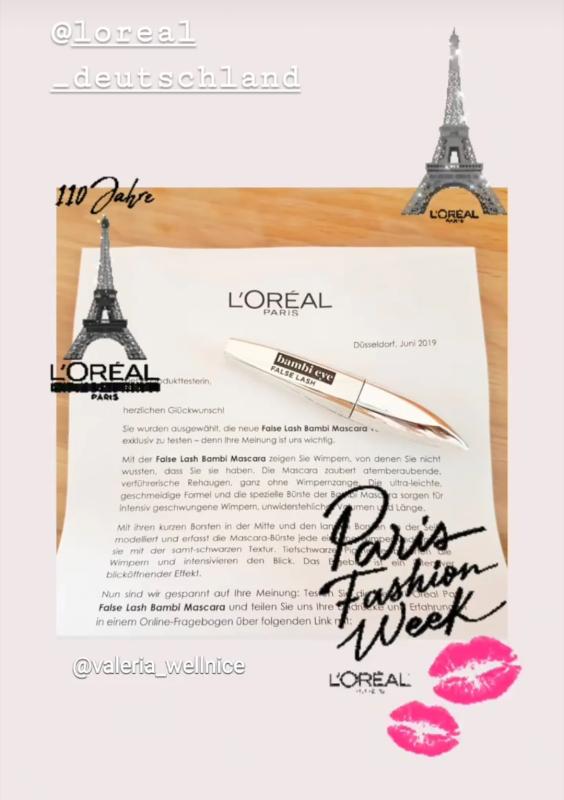 @loreal
_deutschland
L'ORÉAL
PARIS
110 Jahre
L'ORÉAL
PARIS
L'ORÉAL
PARIS
Düsseldorf, Juni 2019
bambi eye
FALSE LASH
herzlichen Glückwunsch!
Sie wurden ausgewählt, die neue False Lash Bambi Mascara
exklusiv zu testen – denn Ihre Meinung ist uns wichtig.
Mit der False Lash Bambi Mascara zeigen Sie Wimpern, von denen Sie nicht
wussten, dass Sie sie haben. Die Mascara zaubert atemberaubende,
verführerische Rehaugen, ganz ohne Wimpernzange. Die ultra-leichte,
geschmeidige Formel und die spezielle Bürste der Bambi Mascara sorgen für
intensiv geschwungene Wimpern, unwiderstehliches Volumen und Länge.
Mit ihren kurzen Borsten in der Mitte und den langen Borsten
modelliert und erfasst die Mascara-Bürste jede
sie mit der samt-schwarzen Textur. Tiefschwarze
Wimpern und intensivieren den Blick. Das Ergebnis ist ein
blicköffnender Effekt.
Nun sind wir gespannt auf Ihre Meinung: Testen Sie
False Lash Bambi Mascara und teilen Sie uns Ihre Eindrücke und Erfahrungen
in einem Online-Fragebogen über folgenden Link mit:
Paris
Fashion
Week
@valeria_wellnice
L'ORÉAL